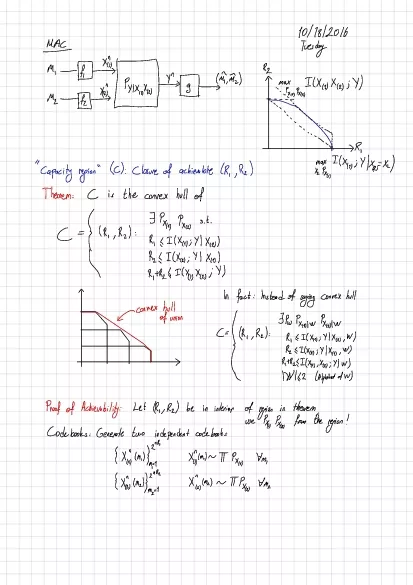 10/18/2016
Tuesday
MAC
M₁ → f₁ X₍₁₎ⁿ
M₂ → f₂ X₍₂₎ⁿ
P_{Y|X₍₁₎X₍₂₎} Yⁿ g (M̂₁, M̂₂)
R₂
max I(X₍₁₎ X₍₂₎ ; Y)
P_{X₍₁₎} P_{X₍₂₎}
R₁
max I(X₍₁₎ ; Y | X₍₂₎ = x₂)
x₂ P_{X₍₁₎}
"Capacity region" (C): Closure of achievable (R₁, R₂)
Theorem: C is the convex hull of
C = { (R₁, R₂) : ∃ P_{X₍₁₎} P_{X₍₂₎} s.t.
R₁ ≤ I(X₍₁₎ ; Y | X₍₂₎)
R₂ ≤ I(X₍₂₎ ; Y | X₍₁₎)
R₁+R₂ ≤ I(X₍₁₎ X₍₂₎ ; Y)
convex hull
of union
In fact: Instead of saying convex hull
C = { (R₁, R₂) : ∃ P_W P_{X₍₁₎|W} P_{X₍₂₎|W}
R₁ ≤ I(X₍₁₎ ; Y | X₍₂₎, W)
R₂ ≤ I(X₍₂₎ ; Y | X₍₁₎, W)
R₁+R₂ ≤ I(X₍₁₎ X₍₂₎ ; Y | W)
|W| ≤ 2 (of W)
Proof of Achievability: Let (R₁, R₂) be in interior of region in theorem
use P_{X₍₁₎} P_{X₍₂₎} from the region!
Codebooks: Generate two independent codebooks
{X₍₁₎ⁿ(m₁)}_{m₁=1}^{2^{nR₁}} X₍₁₎ⁿ(m₁) ~ ∏ P_{X₍₁₎} ∀m₁
{X₍₂₎ⁿ(m₂)}_{m₂=1}^{2^{nR₂}} X₍₂₎ⁿ(m₂) ~ ∏ P_{X₍₂₎} ∀m₂